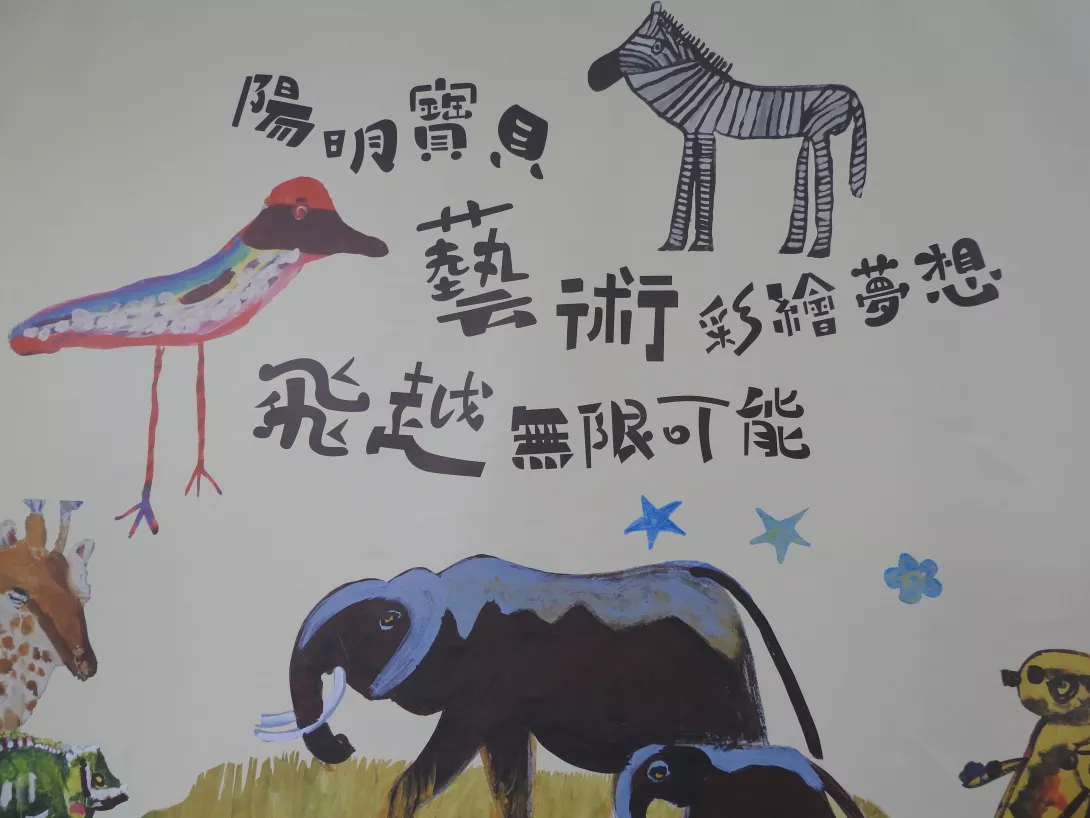 陽明寶貝
藝術彩繪夢想
飛越無限可能